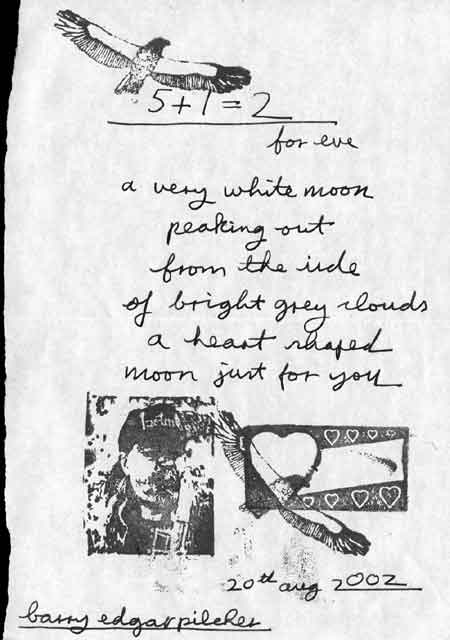 5+1=2
for eve
a very white moon
peaking out
from the side
of bright grey clouds
a heart shaped
moon just for you
20th aug 2002
barry edgar pilcher